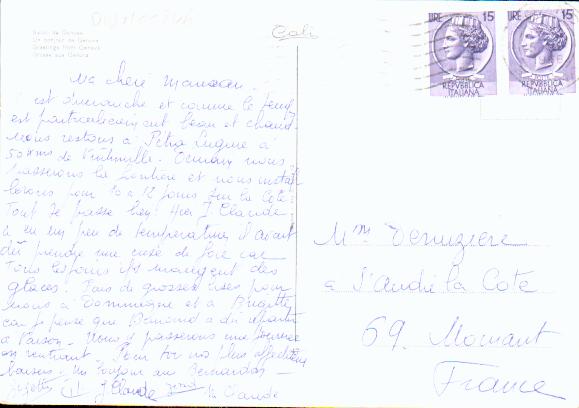 Saluti da Genova
Un bonjour de Genova
Greetings from Genova
Grüsse aus Genova
LIRE 15
LIRE 15
REPVBBLICA
ITALIANA
REPVBBLICA
ITALIANA
Ma chère Maman
c'est dimanche et comme le temps
est particulièrement beau et chaud
nous restons à Pietra Ligure à
50 kms de Vintimille. Demain nous
passerons la frontière et nous
pour 10 à 12 jours sur la Côte.
Tout se passe bien. Hier J. Claude
a eu un peu de température il avait
dû prendre une crise de foie car
tous les jours ils mangent des
glaces. Fais de grosses bises pour
nous à Dominique et à Brigitte
car je pense que Bernard a dû
à Vaison. Nous y passerons une journée
en rentrant. Pour toi nos plus affectueux
baisers. Un bonjour au
J. Claude
Mme Deruzière
à St André la Côte
69. Mornant
France